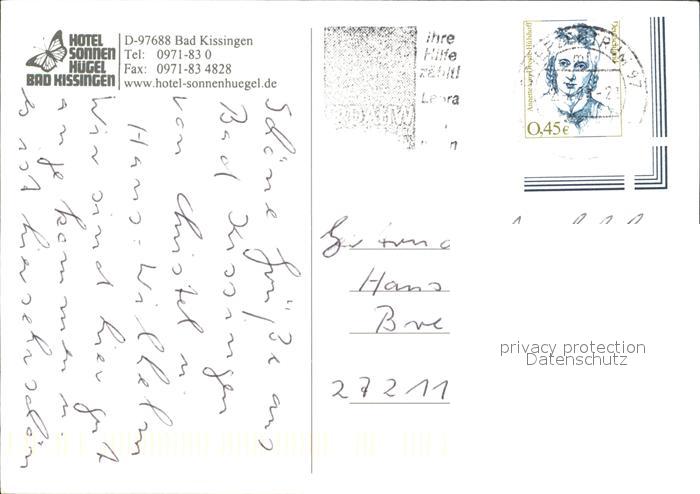 HOTEL
SONNEN
HÜGEL
BAD KISSINGEN
D-97688 Bad Kissingen
Tel: 0971-83 0
Fax: 0971-83 4828
www.hotel-sonnenhuegel.de
Ihre
Hilfe
zählt!
Lepra
DAHW
Annette von Droste-Hülshoff
0,45€
Schöne Grüße aus
Bad Kissingen
von Christel u.
Hans-Wilhelm
Wir sind hier gut
angekommen u.
es ist hier sehr schön
Hans
Bre
27211
privacy protection
Datenschutz